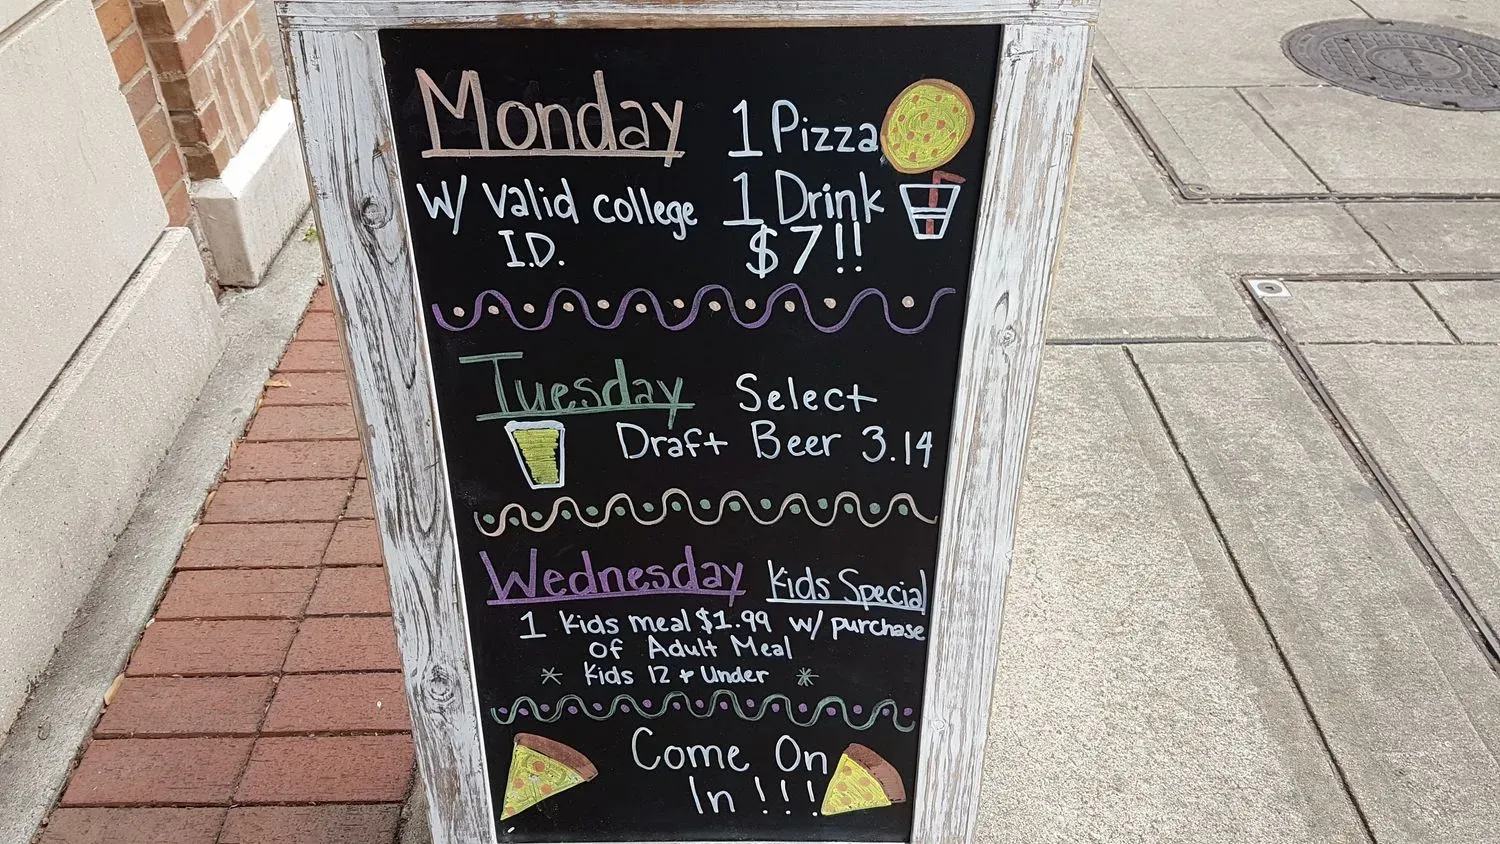 Monday
W/ Valid college
I.D.
1 Pizza
1 Drink
$7!!
Tuesday
Select
Draft Beer 3.14
Wednesday Kids Special
1 Kids meal $1.99 w/ purchase
of Adult Meal
* Kids 12 + Under *
Come On
In !!!